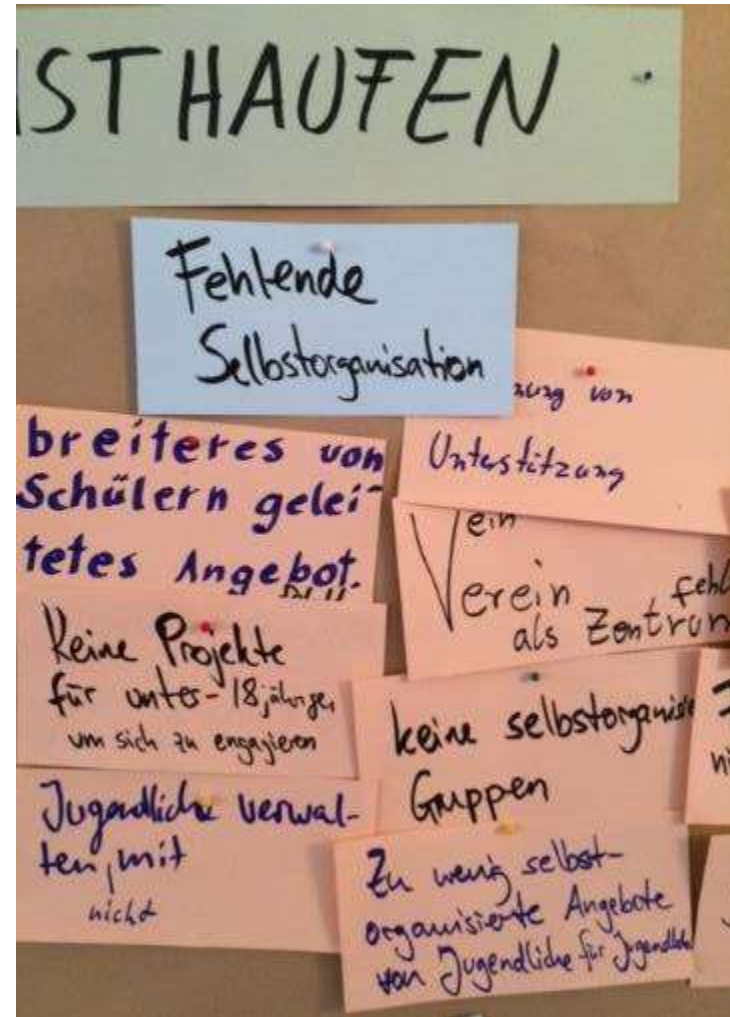 IST HAUFEN
Fehlende
Selbstorganisation
breiteres von
Schülern gelei-
tetes Angebot.
von
Unterstitzung
ein
Verein fehl
als Zentrum
Keine Projekte
für unter-18jährige,
um sich zu engagieren
keine selbstorganisie
Gruppen
ni
Jugendliche verwal-
ten, mit
nicht
Zu wenig selbst-
organisierte Angebote
von Jugendliche für Jugendliche